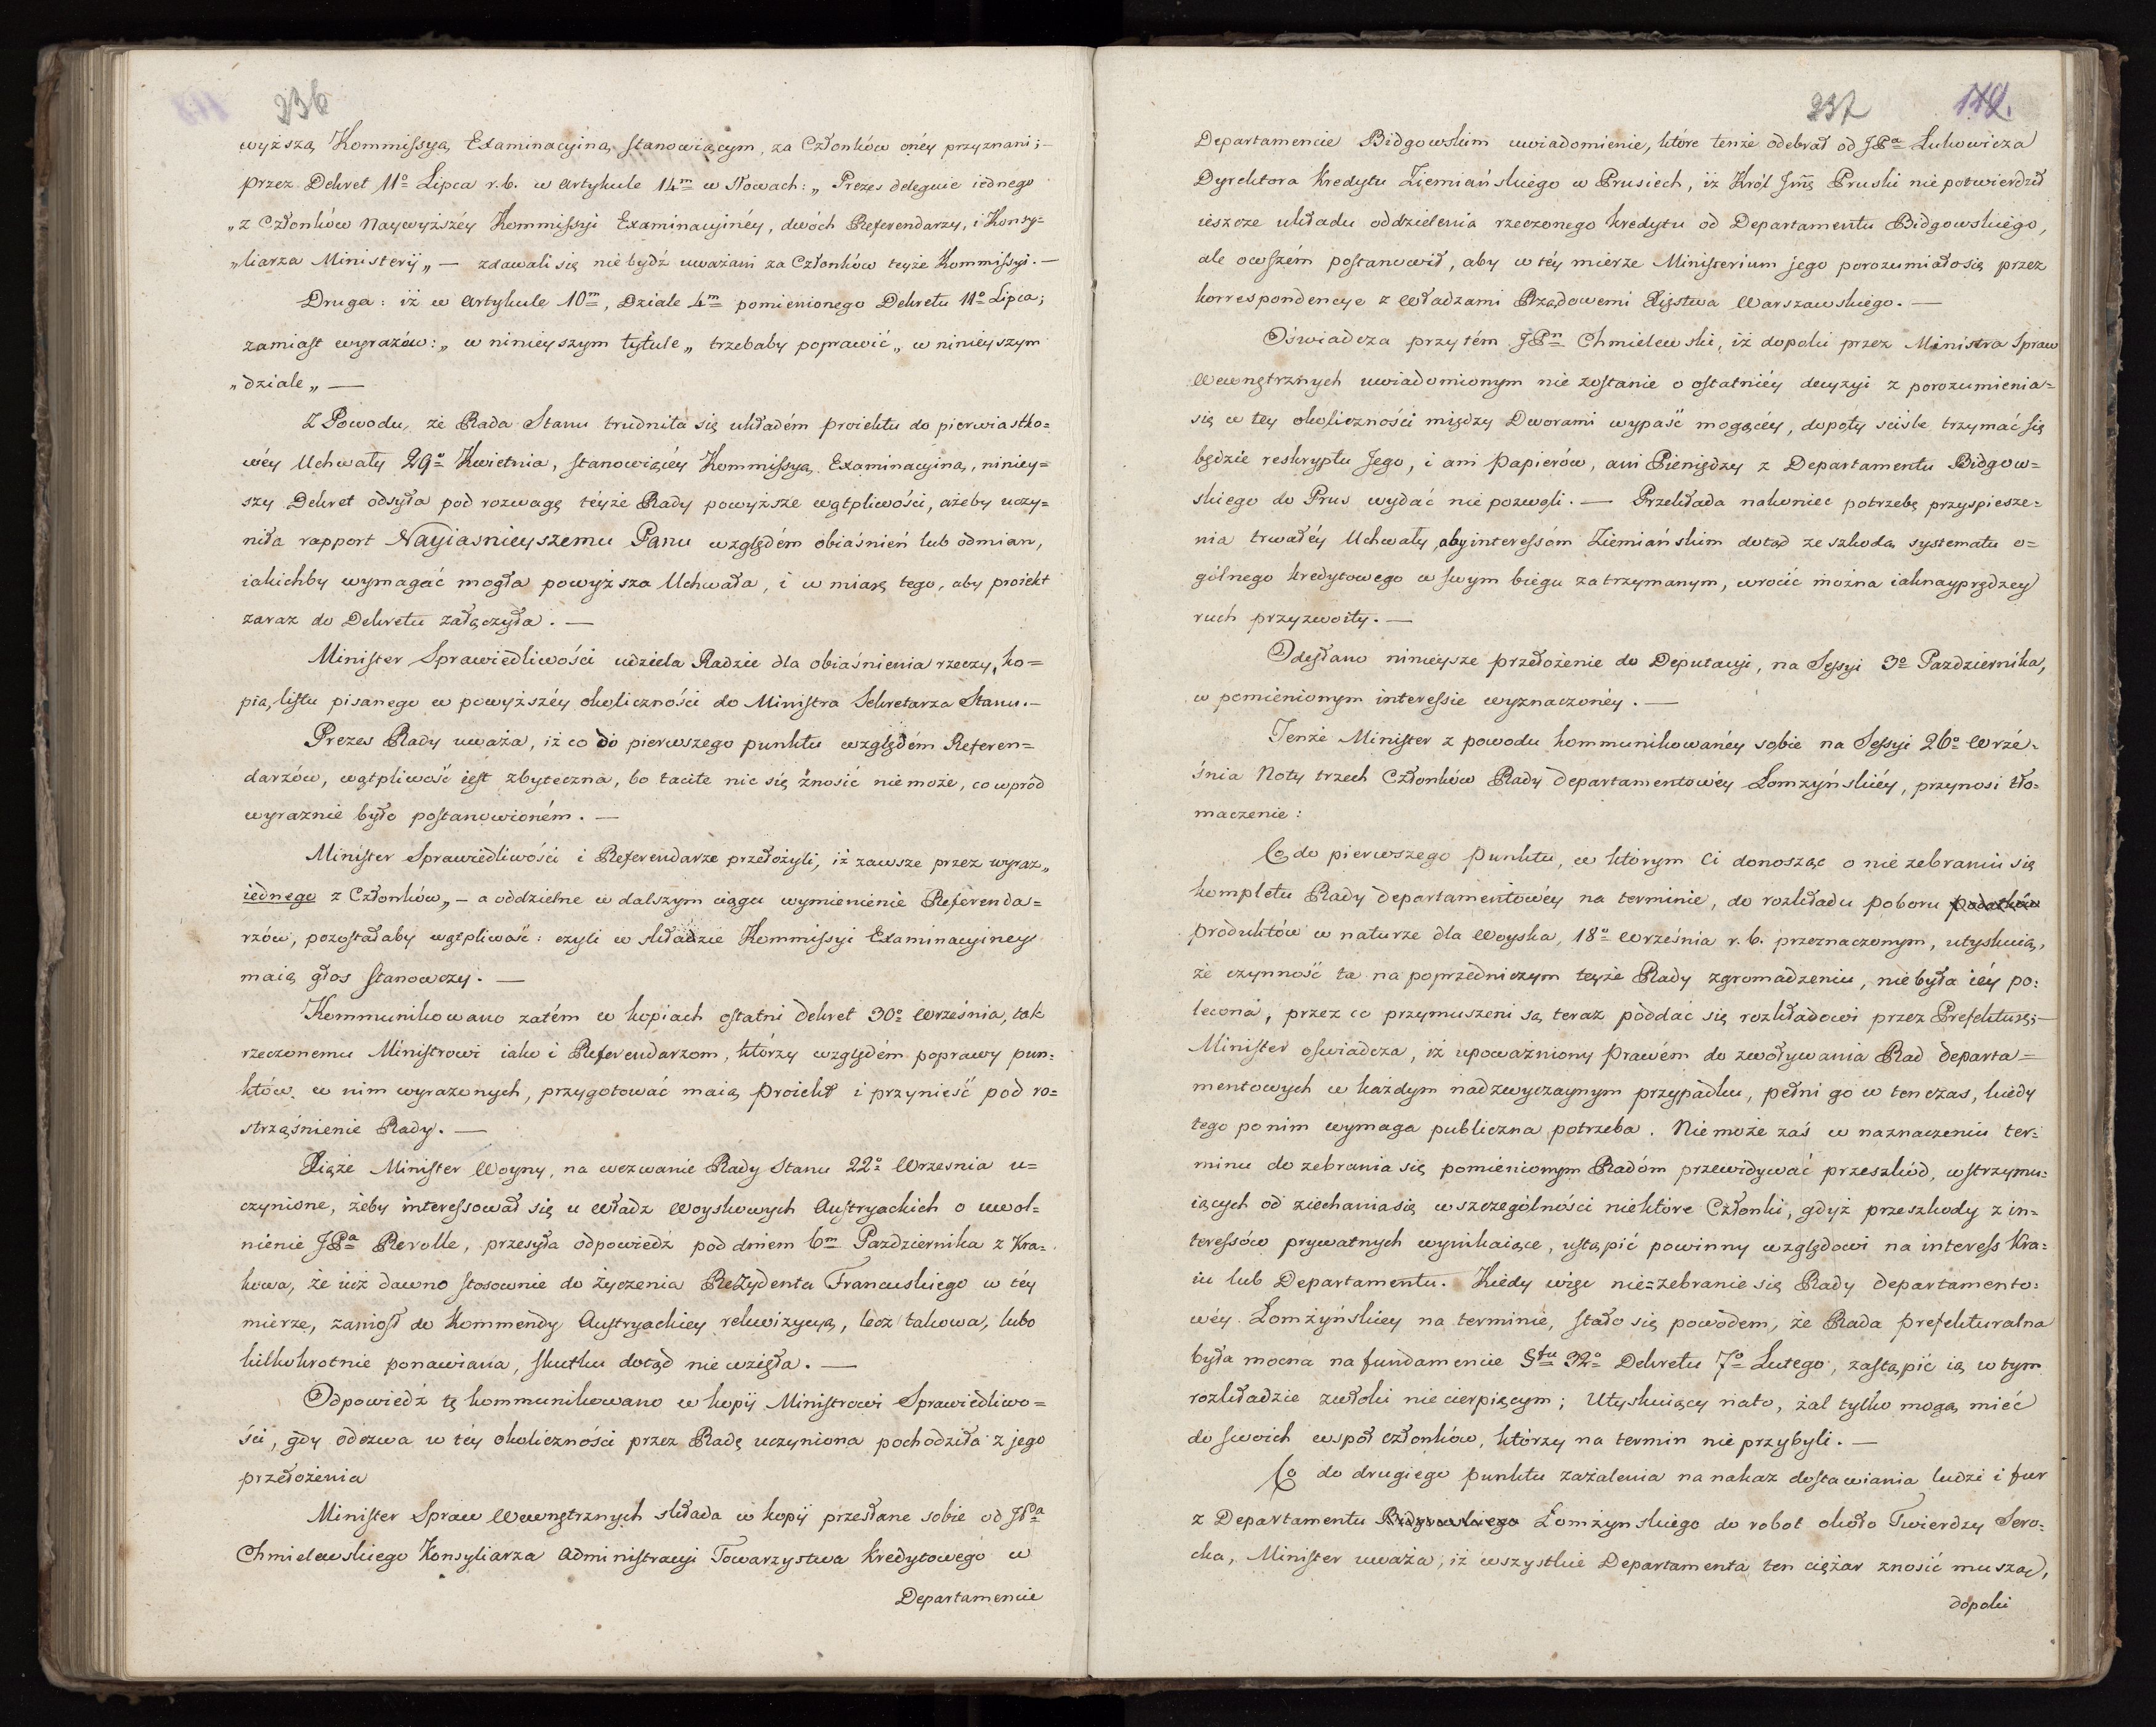 236
wyższą Kommissyą Examinacyiną stanowiącym, za Członków onéy przyznani; –
przez Dekret 11º Lipca r. b. w Artykule 14m w Słowach: „ Prezes deleguie iednego
„ z Członków Naywyższéy Kommissyi Examinacyinéy, dwóch Referendarzy, i Konsy=
„liarza Ministerij „ — zdawali się niebydź uważani za Członków teyże Kommissyi. —
Druga: iż w Artykule 10m, Dziale 4m pomienionego Dekretu 11º Lipca;
zamiast wyrazów: „ w ninieyszym tytule „ trzebaby poprawić „ w ninieyszym
„ dziale „ —
Z Powodu, że Rada Stanu trudniła się układém proiektu do pierwiastko=
wéy Uchwały 29º Kwietnia, stanowiącéy Kommissyą Examinacyiną, niniey=
szy Dekret odsyła pod rozwagę téyże Rady powyższe wątpliwości, ażeby uczy=
niła rapport Nayiaśnieyszemu Panu względém obiaśnień lub odmian,
iakichby wymagać mogła powyższa Uchwała, i w miarę tego, aby proiekt
zaraz do Dekretu załączyła. —
Minister Sprawiedliwości udziela Radzie dla obiaśnienia rzeczy, ko=
pią listu pisanego w powyższéy okoliczności do Ministra Sekretarza Stanu. –
Prezes Rady uważa, iż co do pierwszego punktu względém Referen=
darzów, wątpliwość iest zbyteczna, bo tacite nic się znosić niemoże, co wpród
wyraznie było postanowioném. —
Minister Sprawiedliwości i Referendarze przełożyli, iż zawsze przez wyraz „
iednego z Członków „ – a oddzielne w dalszym ciągu wymienienie Referenda=
rzów, pozostałaby wątpliwość: czyli w składzie Kommissyi Examinacyiney
maią głos stanowczy. —
Kommunikowano zatém w kopiach ostatni Dekret 30º Września, tak
rzeczonemu Ministrowi iako i Referendarzom, którzy względém poprawy pun=
któw w nim wyrażonych, przygotować maią proiekt i przynieść pod ro=
strząśnienie Rady. —
Xiąże Minister Woyny, na wezwanie Rady Stanu 22º Wrzesnia u=
czynione, żeby interessował się u Władz Woyskowych Austryackich o uwol=
nienie JPa Revolle, przesyła odpowiedź pod dniem 6m Pazdziernika z Kra=
kowa, że iuż dawno stosownie do życzenia Rezydenta Francuskiego w téy
mierze, zaniosł do Kommendy Austryackiey rekwizycyą, lecz takowa, lubo
kilkokrotnie ponawiana, skutku dotąd niewzięła. —
Odpowiedź tę kommunikowano w kopij Ministrowi Sprawiedliwo=
ści, gdy odezwa w téy okoliczności przez Radę uczyniona pochodziła z jego
przełożenia
Minister Spraw Wewnętrznych składa w kopij przesłane sobie od JPa
Chmielewskiego Konsyliarza Administracyi Towarzystwa Kredytowego w
Departamencie
237
Departamencie Bidgowskim uwiadomienie, które tenże odebrał od JPa Lukowicza
Dyrektora Kredytu Ziemiańskiego w Prusiech, iż Król Jmć Pruski niepotwierdził
ieszcze układu oddzielenia rzeczonego kredytu od Departamentu Bidgowskiego,
ale owszém postanowił, aby w téy mierze Ministerium jego porozumiałosię przez
korrespondencye z Władzami Rządowemi Xięstwa Warszawskiego. —
Oświadcza przytém JPn Chmielewski, iż dopóki przez Ministra Spraw
Wewnętrznych uwiadomionym nie zostanie o ostatniéy decyzyi z porozumienia=
się w tey okoliczności między Dworami wypaść mogącéy, dopóty ściśle trzymać się
będzie reskryptu Jego, i ani Papierów, ani Pieniędzy z Departamentu Bidgow=
skiego do Prus wydać nie pozwoli. — Przekłada nakoniec potrzebę przyspiesze=
nia trwałéy Uchwały, aby interessóm Ziemiańskim dotąd ze szkodą systematu o=
gólnego kredytowego w swym biegu zatrzymanym, wrócić można iaknayprędzey
ruch przyzwoity. —
Odesłano ninieysze przełożenie do Deputacyi, na Sessyi 3º Pazdziernika,
w pomienionym interessie wyznaczonéy. —
Tenże Minister z powodu kommunikowanéy sobie na Sessyi 26º Wrze=
śnia Noty trzech Członków Rady Departamentowéy Łomżyńskiéy, przynosi tło=
maczenie:
Co do pierwszego punktu, w którym Ci donosząc o nie zebraniu się
kompletu Rady Departamentowéy na terminie, do rozkładu poboru podatków
produktów w naturze dla Woyska, 18º Września r. b. przeznaczonym, utyskuią,
że czynność ta na poprzedniczym teyże Rady zgromadzeniu, niebyła iéy po=
lecona, przez co przymuszeni są teraz poddać się rozkładowi przez Prefekturę; —
Minister oswiadcza, iż upoważniony prawém do zwoływania Rad Departa=
mentowych w każdym nadzwyczaynym przypadku, pełni go w ten czas, kiedy
tego po nim wymaga publiczna potrzeba. Niemoże zaś w naznaczeniu ter=
minu do zebrania się pomienionym Radóm przewidywać przeszkód, wstrzymu=
iących od ziechaniasię w szczególności niektóre Członki, gdyż przeszkody z in=
teressów prywatnych wynikaiące, ustąpić powinny względowi na interess Kra=
iu lub Departamentu. Kiedy więc nie=zebranie się Rady Departamento=
wéy Łomżyńskiey na terminie, stało się powodem, że Rada prefekturalna
była mocna na fundamencie §fu 32º Dekretu 7º Lutego, zastąpić ią w tym
rozkładzie zwłoki niecierpiącym; Utyskuiący nato, żal tylko mogą mieć
do swoich współ członków, którzy na termin nie przybyli. —
Co do drugiego punktu zażalenia na nakaz dostawiania ludzi i fur
z Departamentu Bidgowskiego Łomżynskiego do robot około Twierdzy Sero=
cka, Minister uważa, iż wszystkie Departamenta ten ciężar znosić muszą,
dopóki